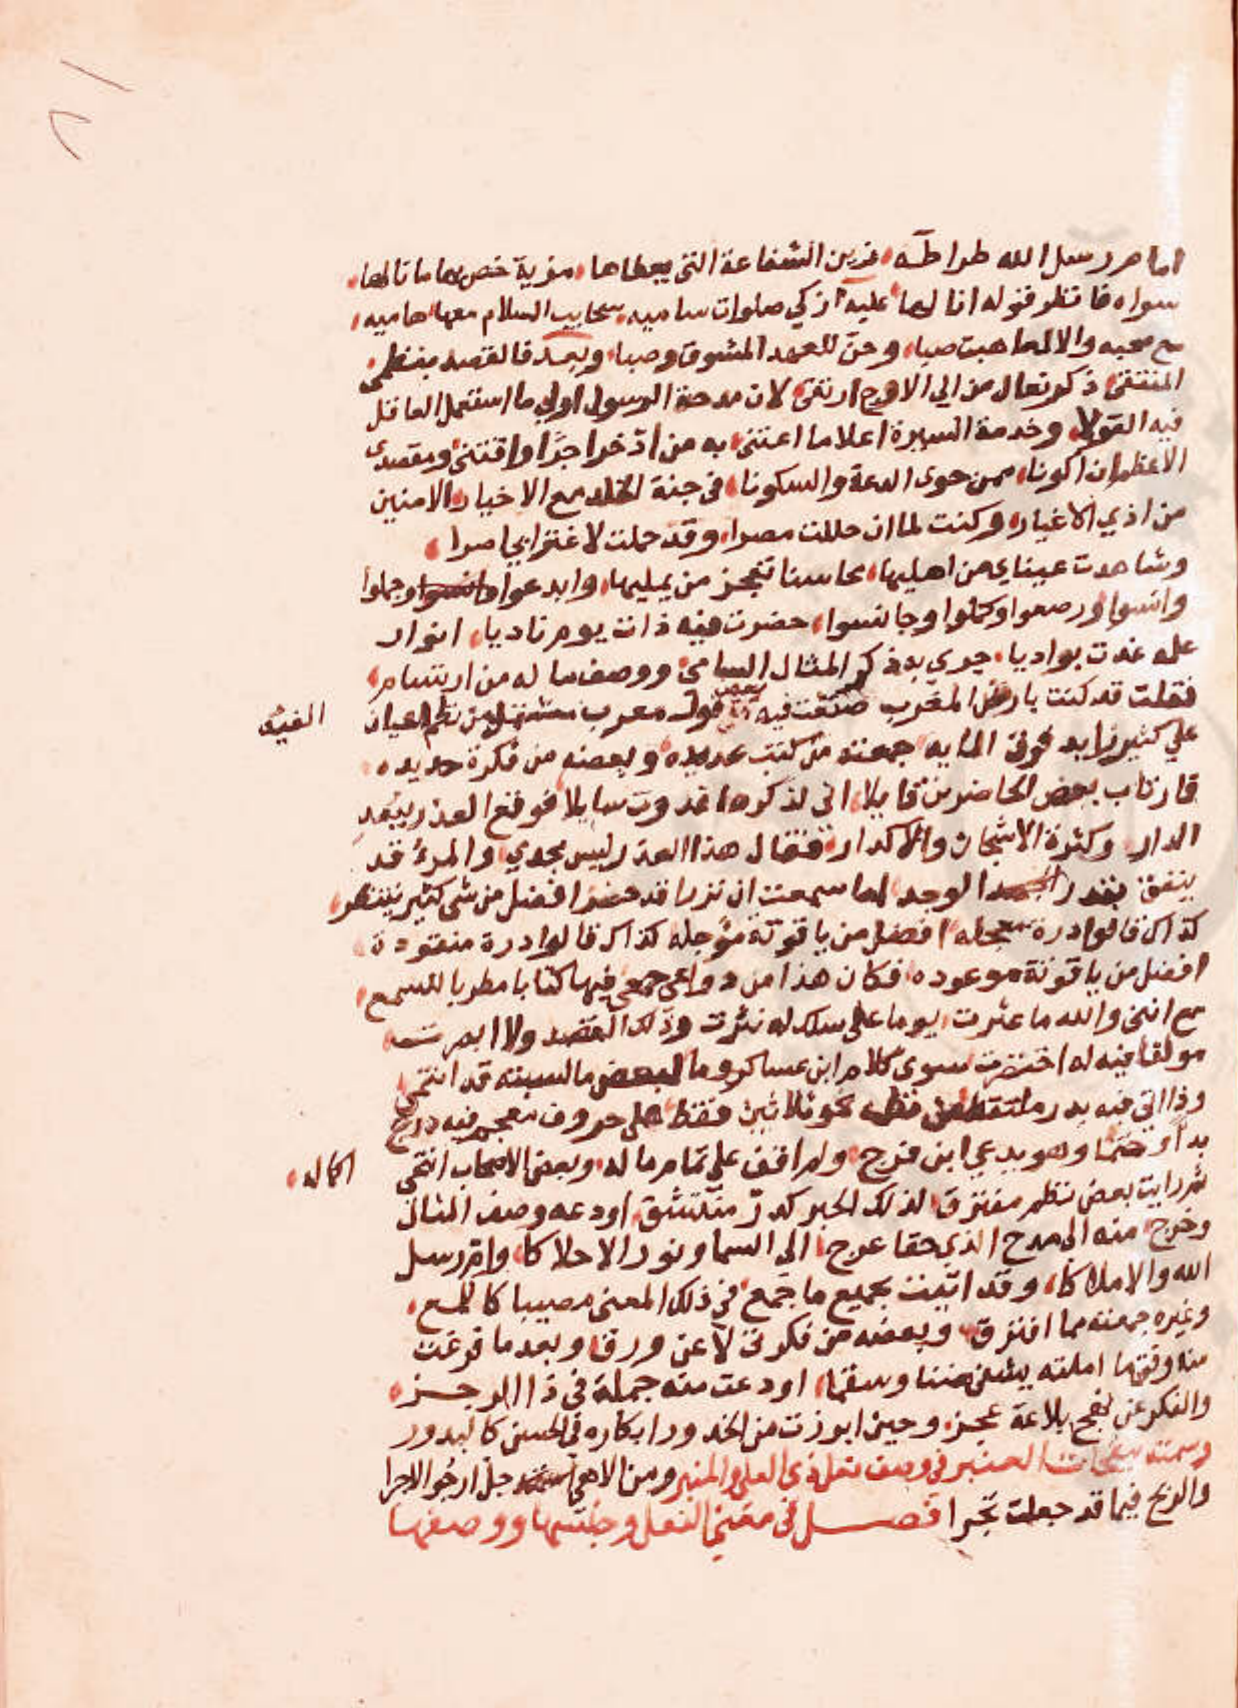 امام رسل الله طرا طه مزين الشفاعة التي يعطاها مزية خص بها ما نالها
سواه فانظر قوله انا لها عليه ازكي صلوات ساميه سحايب السلام معها هاميه
مع صحبه والال ما هبت صبا وحن للعهد المشوق وصبا وبعد فالقصد بنظمي
المنتقي ذكر نعال من الي الاوج ارتقي لان مدحة الرسول اولي ما استعمل العاقل
فيه القولا وخدمة السيرة اعلا ما اعتني به من ادخر اجرا واقتني ومقصدي
الاعظم ان اكونا ممن حوي الدعة والسكونا في جنة الخلد مع الاخيار الامنين
من اذي الاغيار وكنت لما ان حللت مصرا وقد حملت لاغترابي اصرا
وشاهدت عيناي من اهليها محاسنا تعجز من يمليها وابدعوا وجملوا
وانسوا ورصعوا وكملوا وجانسوا حضرت فيه ذات يوم ناديا انوار
علم غدت بواديا جري به ذكر المثال السامي ووصف ما له من ارتسام
فقلت قد كنت بارض المغرب صنفت فيه بعض قول معرب مشتمل من نظم اعيان
الفيه
علي كثير زايد فوق المايه جمعته من كتب عديده وبعضه من فكرة حديده
فارتاب بعض الحاضرين قايلا اني لذكرها غدوت سايلا فوقع العذر ببعد
الدار وكثرة الاشجان والاكدار فقال هذا العذر ليس يجدي والمرء قد
ينفق بقدر الوجد اما سمعت ان نزرا قد حضر افضل من شي كثير ينتظر
كذاك قالوا درة معجله افضل من ياقوتة مؤجله كذاك قالوا درة منقودة
افضل من ياقوتة موعوده فكان هذا من دواعي جمعي فيها كتابا مطربا للسمع
مع انني والله ما عثرت يوما علي سلك له نثرت وذلك المقصد ولا ابصرته
مولفا فيه له اختصرت سوي كلام ابن عساكر وما لبعض ما لسبته قد انتمي
وذا اتي فيه بدر ملتقط من نظمه نحو ثلاثين فقط علي حروف معجم فيه درج
بدأ وختما وهو يدعي ابن فرج ولم اقف علي تمام ما له وبعض الاصحاب انتقي
اكماله
ثم رايت بعض نظم مفترق لذلك الحبر كدر منتشق اودعه وصف المثال
وخرج منه الي مدح الذي حقا عرج الي السما ونور الاحلاكا وام رسل
الله والاملاكا وقد اتيت بجميع ما جمع في ذلك المعني مصيبا كاللمع
وغيره جمعته مما افترق وبعضه من فكرتي لا عن ورق وبعد ما فرغت
منه وفق ما املته يشفي ضنا وسقما اودعت منه جملة في ذا الرجز
والفكر عن نهج بلاغة عجز وحين ابرزت من الخدور ابكاره في الحسن كالبدور
وسمته بنفحات العنبر في وصف نعل ذي العلي والمنبر ومن الاهي جل ارجو الاجرا
والربح فيما قد جعلت تجرا فصل في معني النعل وخلتها ووصفها